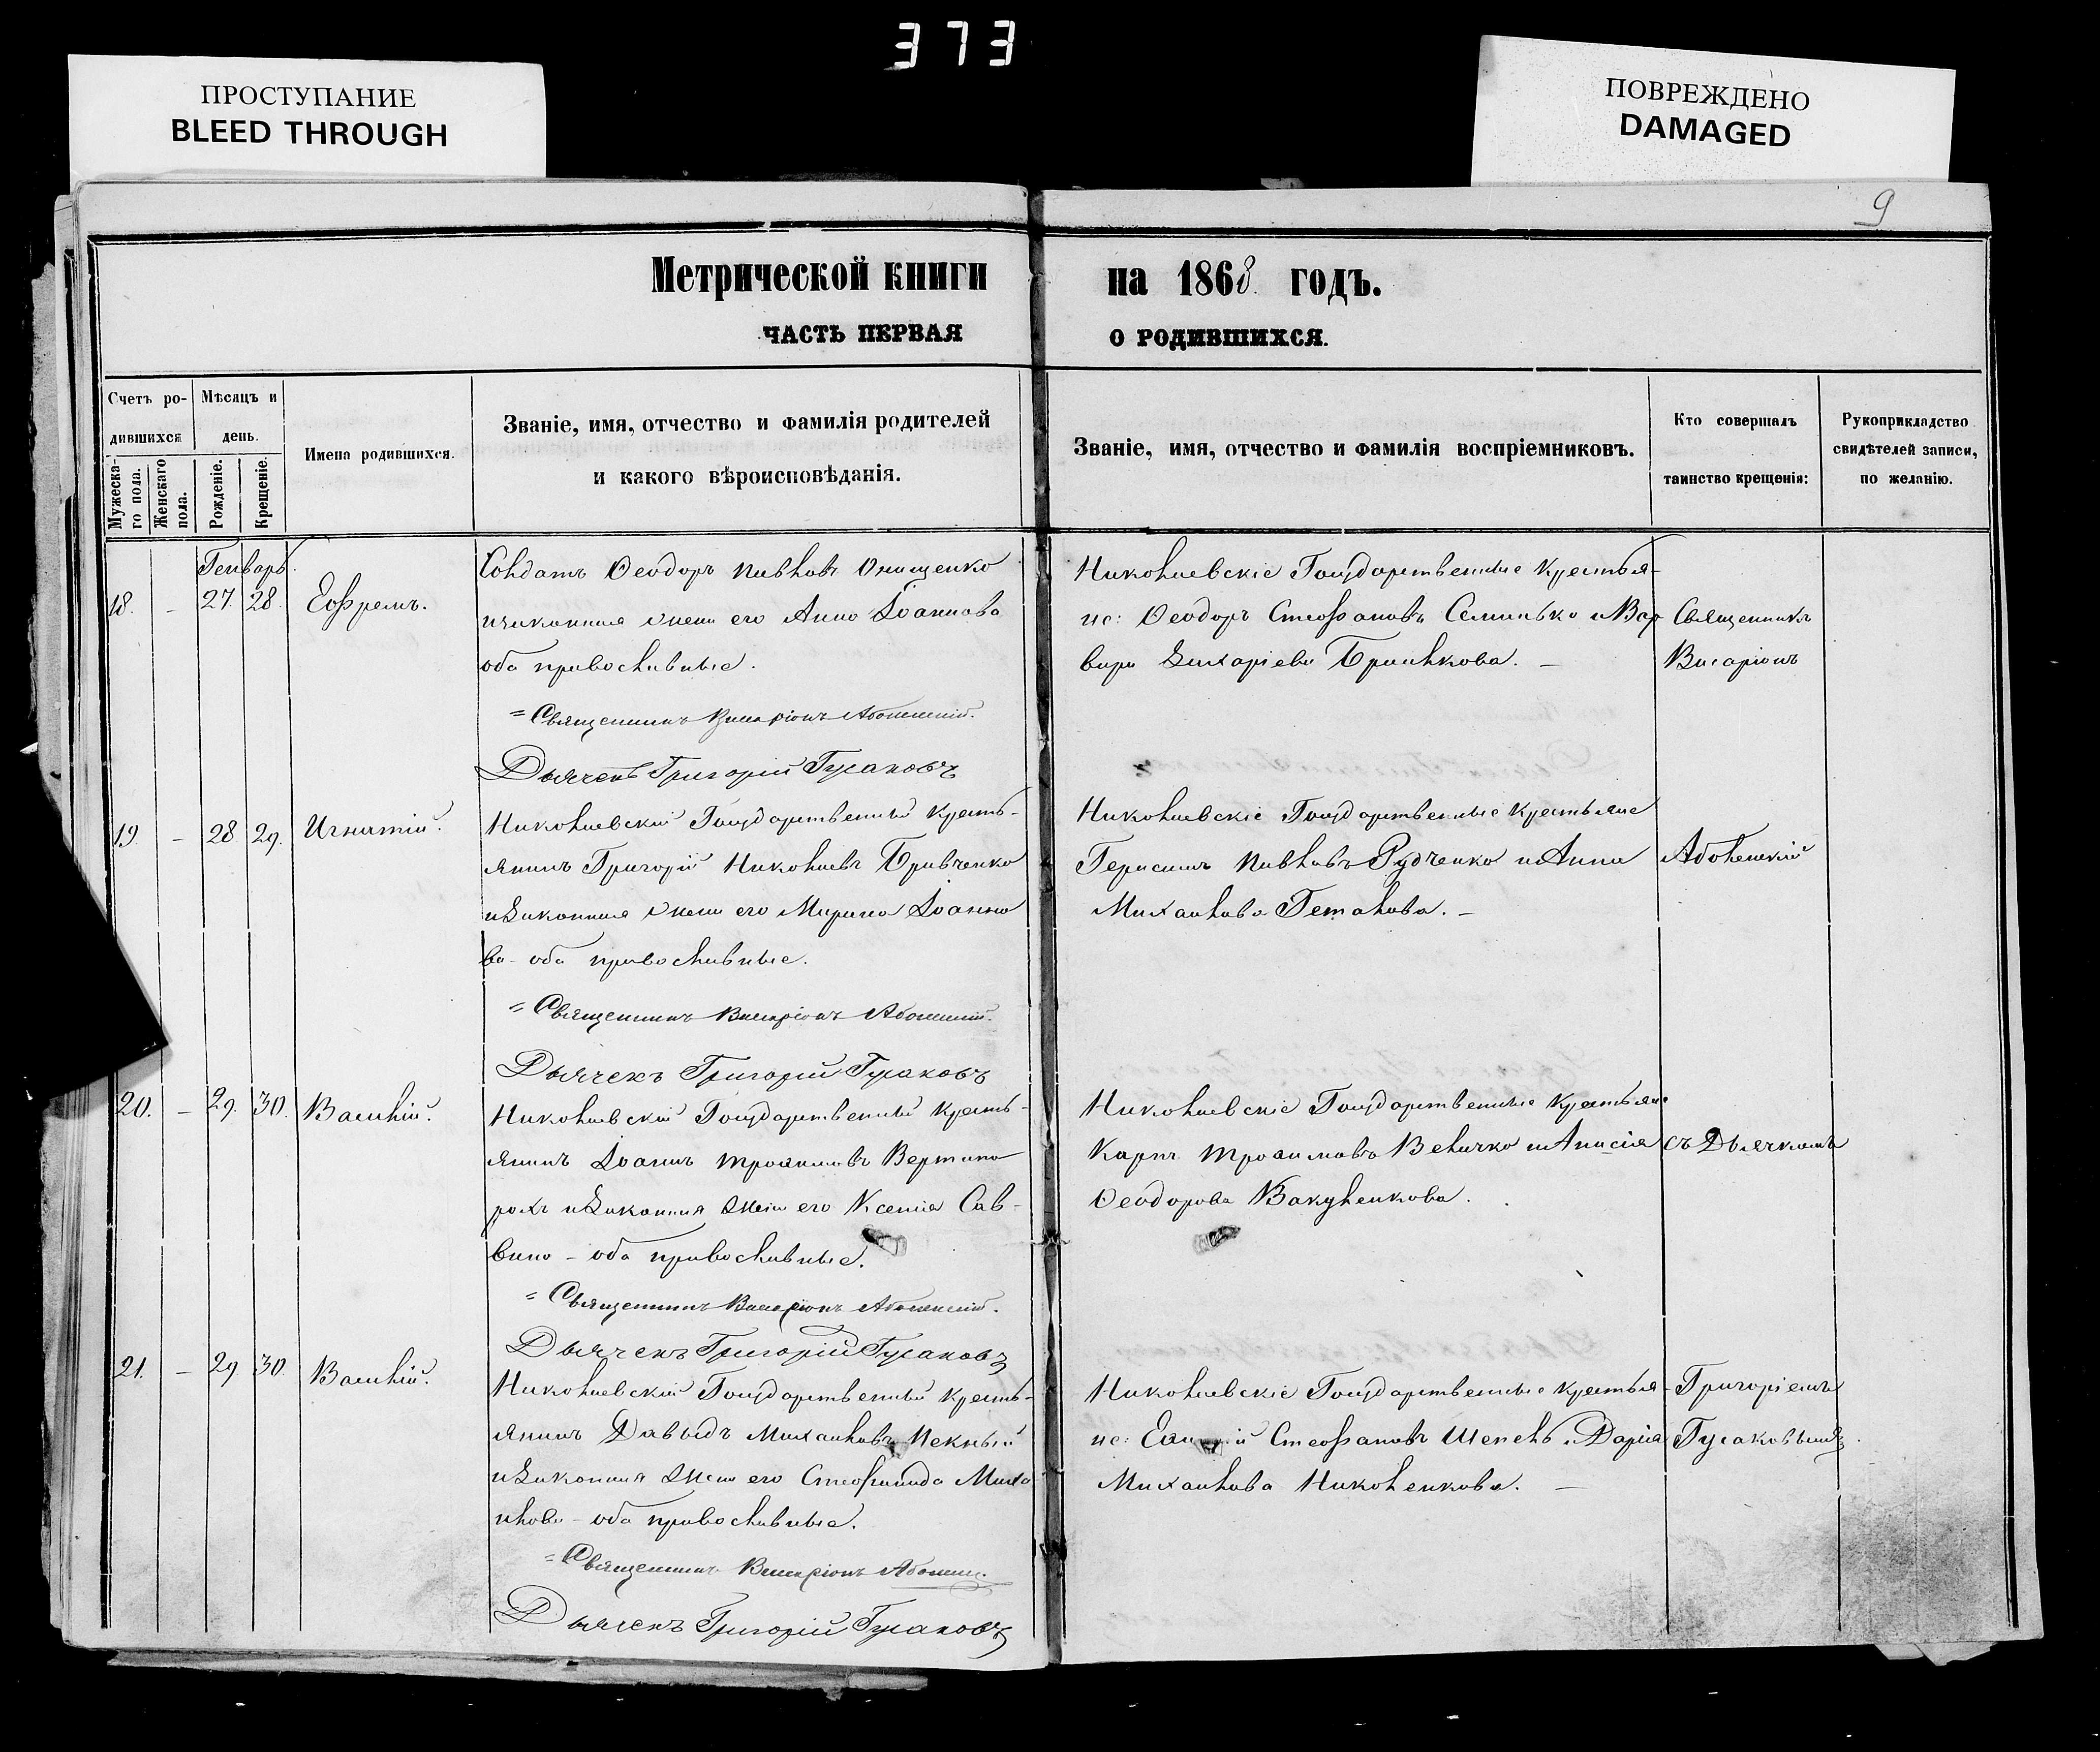 373
ПРОСТУПАНИЕ
BLEED THROUGH
ПОВРЕЖДЕНО
DAMAGED
9
Метрической книги на 1868 годъ.
ЧАСТЬ ПЕРВАЯ О РОДИВШИХСЯ.
Счетъ ро-
дившихся
Мужеска-
го пола.
Женскаго
пола.
Мѣсяцъ и
день.
Рожденіе.
Крещеніе.
Имена родившихся.
Званіе, имя, отчество и фамилія родителей
и какого вѣроисповѣданія.
Званіе, имя, отчество и фамилія воспріемниковъ.
Кто совершалъ
таинство крещенія:
Рукоприкладство
свидѣтелей записи,
по желанію.
Генварь.
18. - 27. 28. Ефремъ.
Солдатъ Ѳеодоръ Павловъ Онищенко
и законная жена его Анна Іоаннова
оба православные.
= Священникъ Висаріонъ
Дьячекъ Григорій Гусаковъ
Николаевскіе Государственные крестья-
не: Ѳеодоръ Стефановъ и Вар
вара Захаріева
Священникъ
Висаріонъ
19. - 28 29. Игнатій.
Николаевскій Государственный кресть-
янинъ Григорій Николаевъ
и законная жена его Марина Іоанно
ва - оба православные.
= Священникъ Висаріонъ
Дьячекъ Григорій Гусаковъ
Николаевскіе Государственные крестьяне
Герасимъ Павловъ Рудченко и Анна
Михаилова Геталова. -
20. - 29. 30. Василій.
Николаевскій Государственный кресть-
янинъ Іоаннъ Трофимовъ
и законная жена его Ксенія Сав-
вина - оба православные.
= Священникъ Висаріонъ
Дьячекъ Григорій Гусаковъ
Николаевскіе Государственные крестьяне
Карпъ Трофимовъ Величко и Анисія
Ѳеодорова Вакуленкова.
съ Дьячкомъ
21. - 29 30. Василій.
Николаевскій Государственный кресть-
янинъ Давыдъ Михаиловъ
и законная жена его Стефанида Миха
илова - оба православные.
= Священникъ Висаріонъ
Дьячекъ Григорій Гусаковъ
Николаевскіе Государственные крестья-
не: Стефановъ Шепель и Дарія
Михаилова Николенкова. -
Григоріемъ
Гусаковымъ.